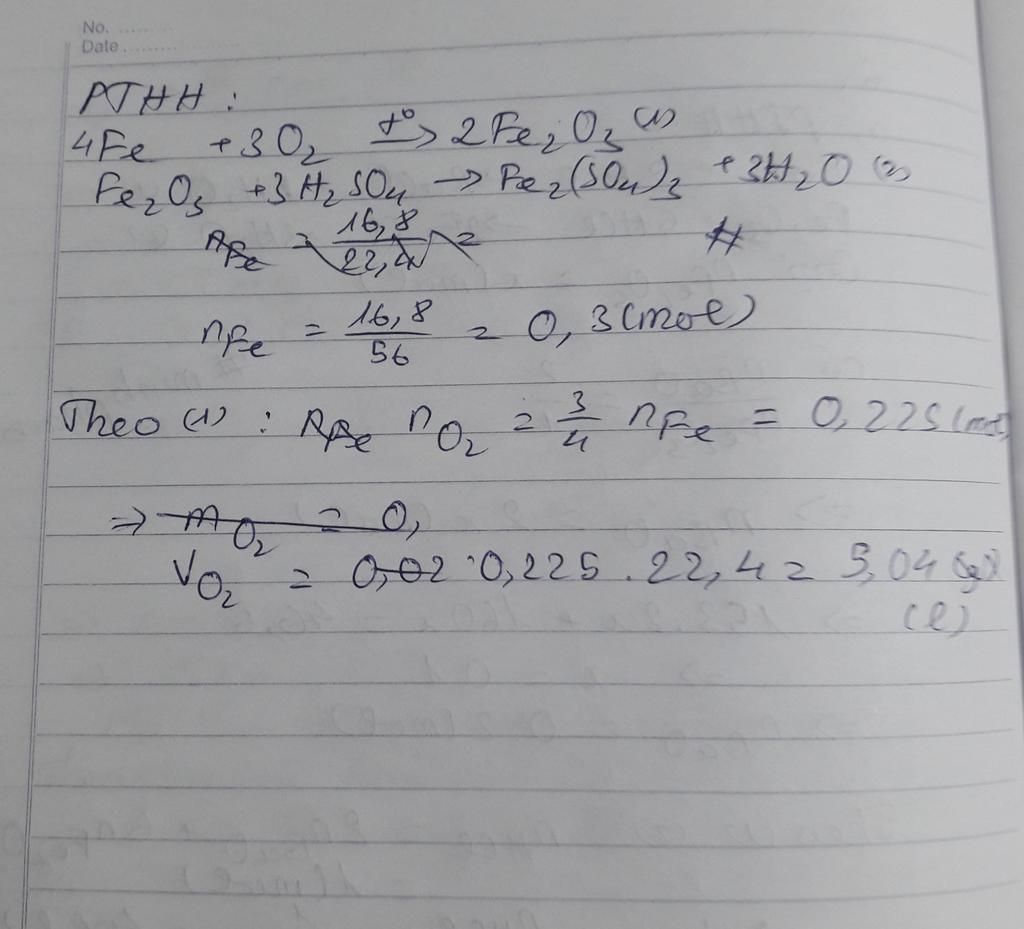 No. ........
Date ....................
PTHH :
4Fe + 3O₂ →(t°) 2Fe₂O₃ (1)
Fe₂O₃ + 3H₂SO₄ → Fe₂(SO₄)₃ + 3H₂O (2)
nFe = 16,8/22,4 = #
nFe = 16,8/56 = 0,3 (mol)
Theo (1) : nFe nO₂ = 3/4 nFe = 0,225 (mol)
=> mO₂ = 0,
VO₂ = 0,02 . 0,225 . 22,4 = 5,04
(l)